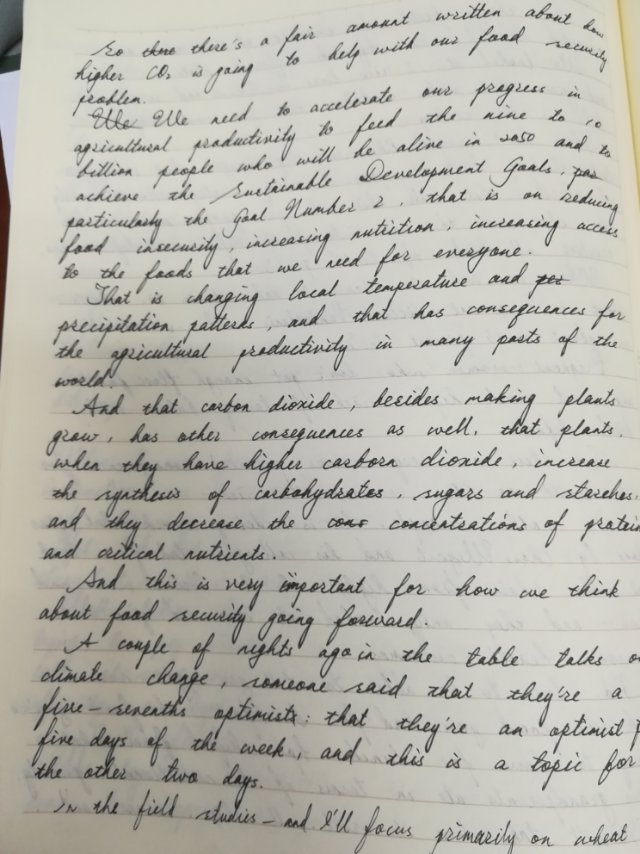 So there there's a fair amount written about how
higher CO₂ is going to help with our food security
problem.
We We need to accelerate our progress in
agricultural productivity to feed the nine to 10
billion people who will be alive in 2050 and to
achieve the Sustainable Development Goals, par
particularly the Goal Number 2, that is on reducing
food insecurity, increasing nutrition, increasing access
to the foods that we need for everyone.
That is changing local temperature and per
precipitation patterns, and that has consequences for
the agricultural productivity in many parts of the
world.
And that carbon dioxide, besides making plants
grow, has other consequences as well, that plants,
when they have higher carborn dioxide, increase
the synthesis of carbohydrates, sugars and starches,
and they decrease the cons concentrations of protein
and critical nutrients.
And this is very important for how we think
about food security going forward.
A couple of nights ago in the table talks on
climate change, someone said that they're a
five-sevenths optimist: that they're an optimist
five days of the week, and this is a topic for
the other two days.
In the field studies - and I'll focus primarily on wheat